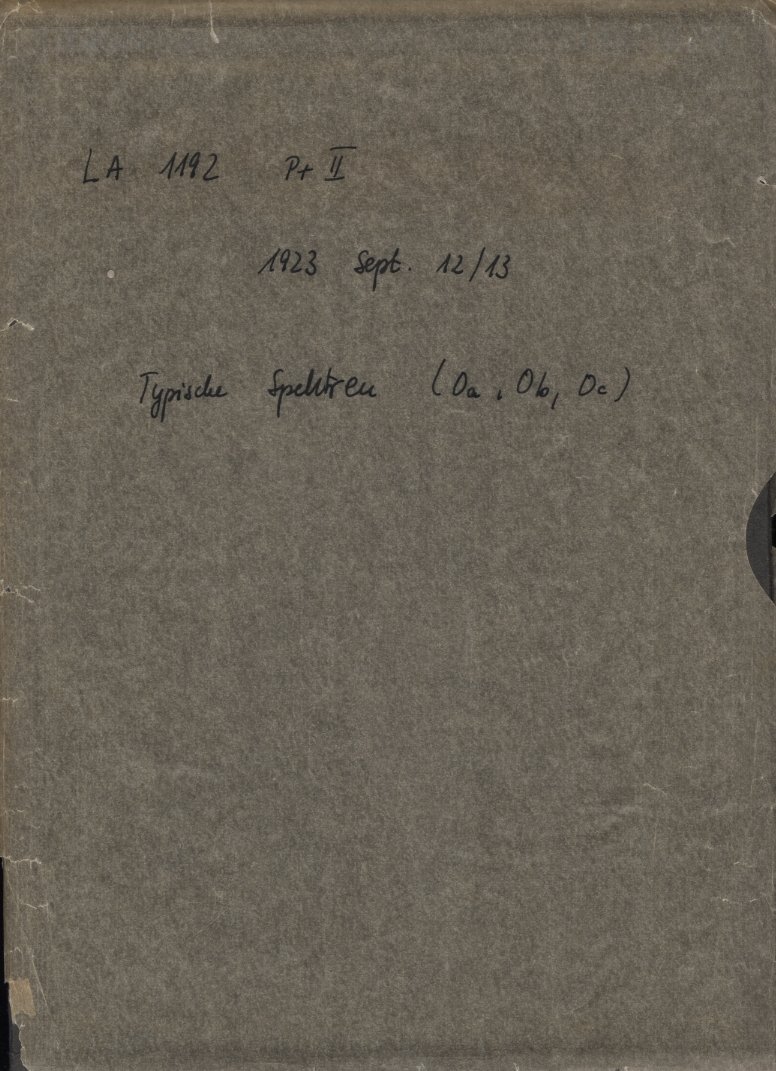 LA 1192 Pt II
1923 Sept. 12/13
Typische Spektren (Oa, Ob, Oc)